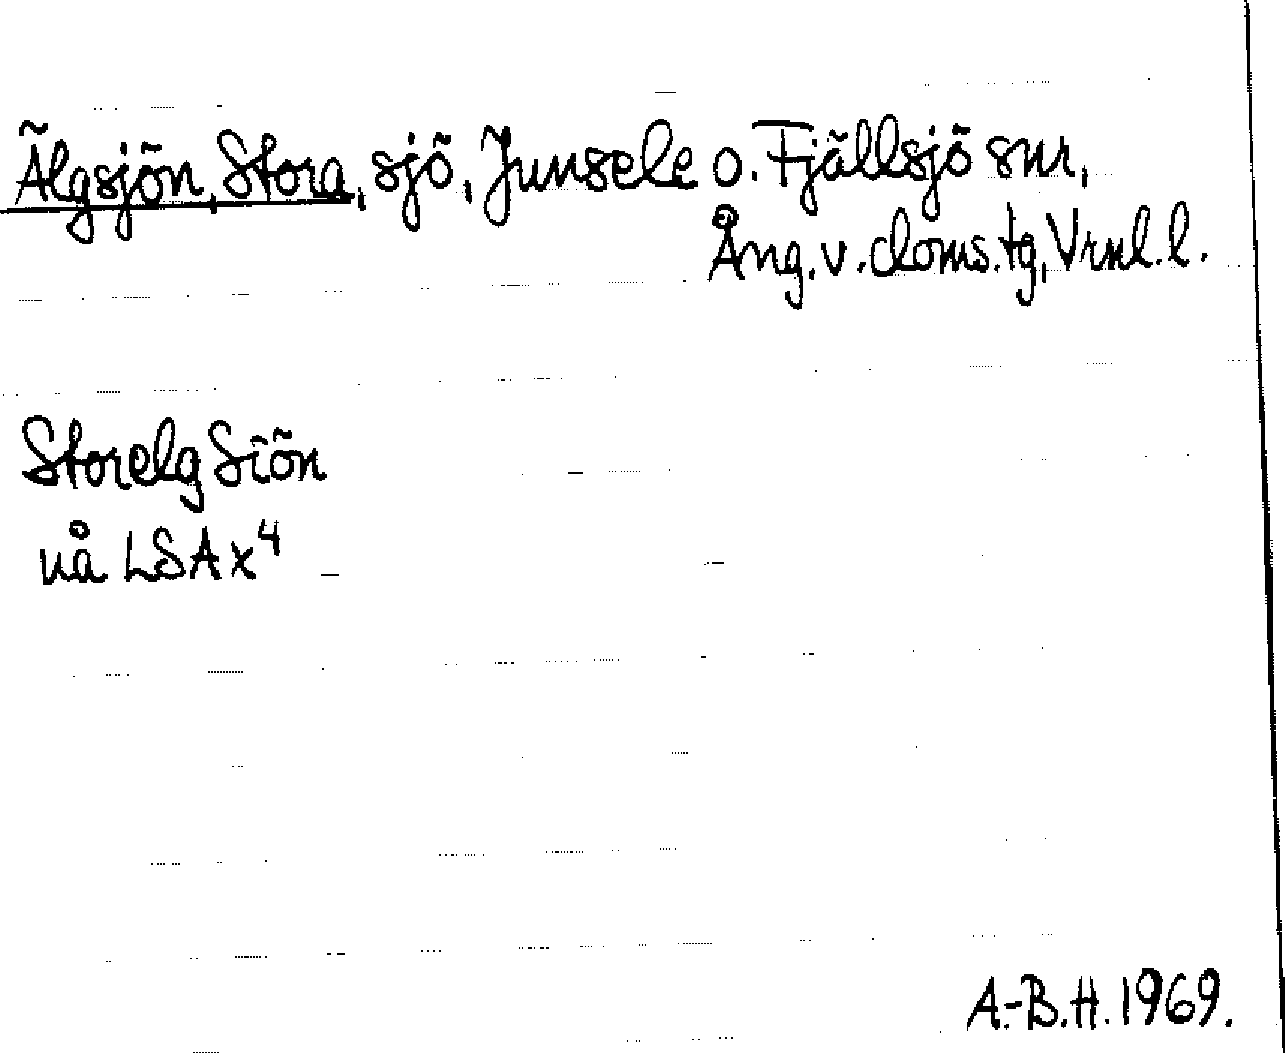 Älgsjön, Stora, sjö, Junsele o. Fjällsjö snr,
Ång. v. doms. tg, Vrnl. l.
Storelg Siön
nå LSA x⁴
A.-B.H. 1969.